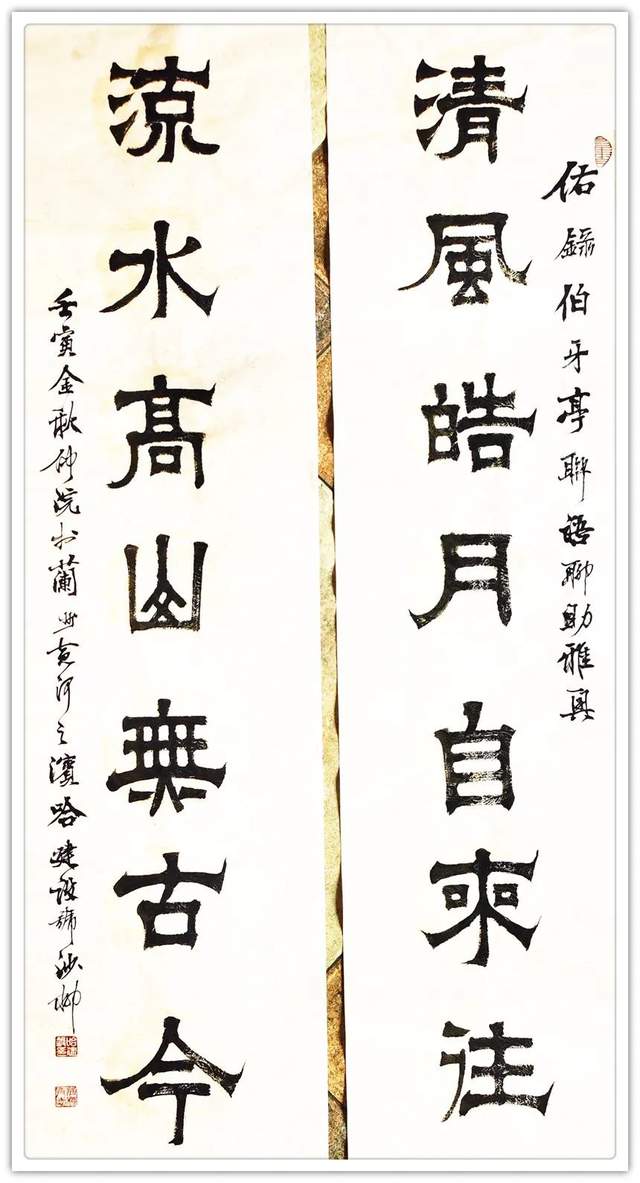 清風皓月自來往
流水高山無古今
佑錄伯牙亭聯語聊助雅興
壬寅金秋仲浣书蘭州黄河之濱哈建设號沙柳